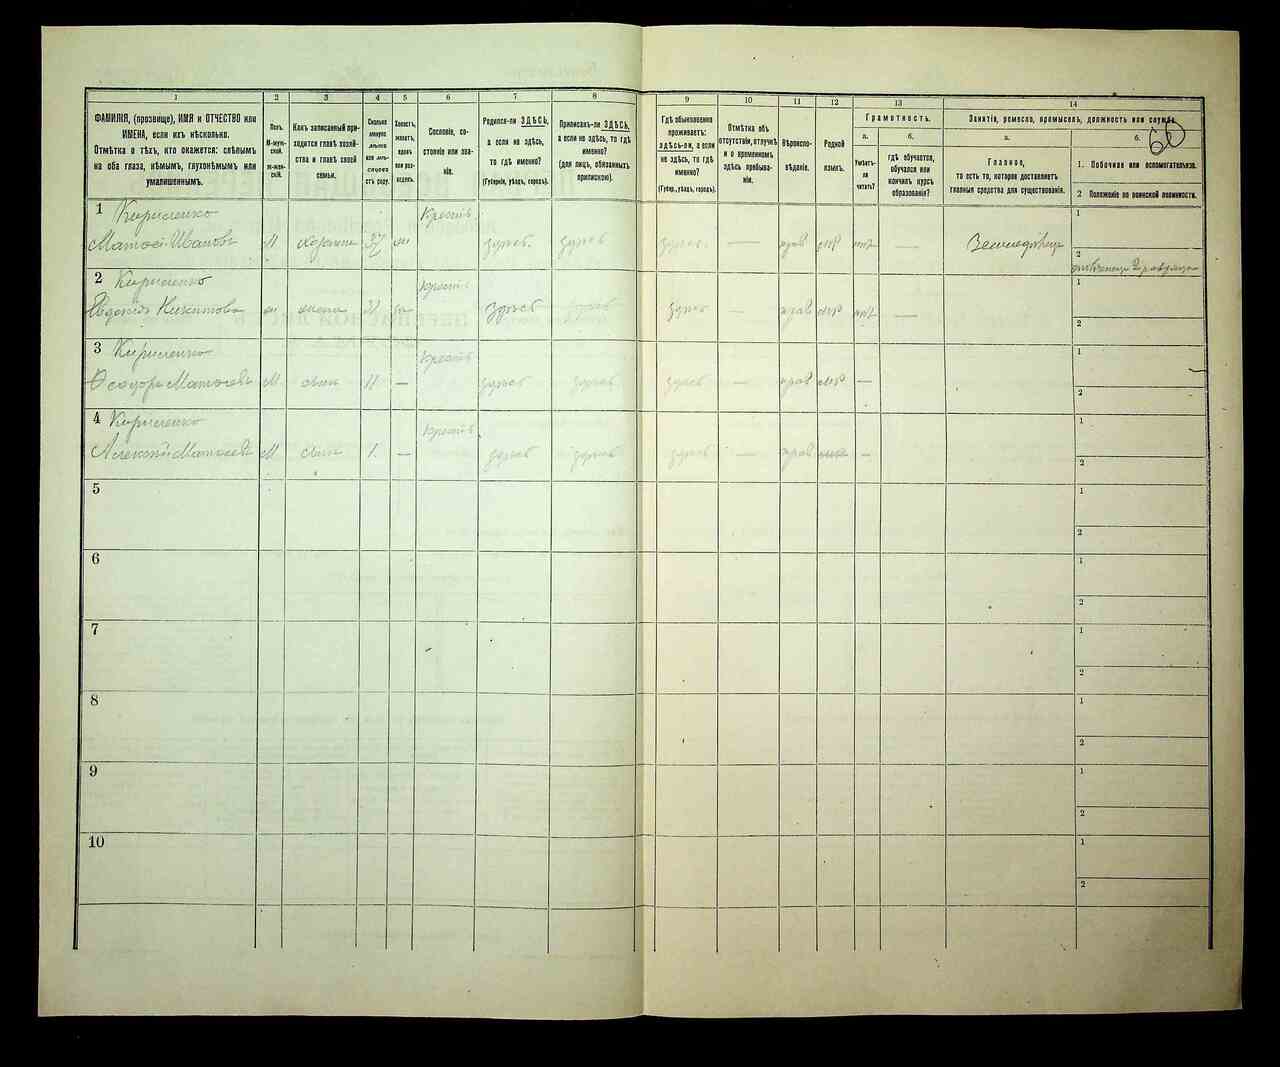 60
1 2 3 4 5 6 7 8 9 10 11 12 13 14
ФАМИЛІЯ, (прозвище), ИМЯ и ОТЧЕСТВО или
ИМЕНА, если ихъ нѣсколько.
Отмѣтка о тѣхъ, кто окажется: слѣпымъ
на оба глаза, нѣмымъ, глухонѣмымъ или
умалишеннымъ.
Полъ.
М-муж-
ской.
ж-жен-
скій.
Какъ записанный при-
ходится главѣ хозяй-
ства и главѣ своей
семьи.
Сколько
минуло
лѣтъ
или мѣ-
сяцевъ
отъ роду.
Холостъ,
женатъ,
вдовъ
или раз-
веденъ.
Сословіе, со-
стояніе или зва-
ніе.
Родился-ли ЗДѢСЬ,
а если не здѣсь,
то гдѣ именно?
(Губернія, уѣздъ, городъ).
Приписанъ-ли ЗДѢСЬ,
а если не здѣсь, то гдѣ
именно?
(для лицъ, обязанныхъ
припискою).
Гдѣ обыкновенно
проживаетъ:
здѣсь-ли, а если
не здѣсь, то гдѣ
именно?
(Губер., уѣздъ, городъ).
Отмѣтка объ
отсутствіи, отлучкѣ
и о временномъ
здѣсь пребыва-
ніи.
Вѣроиспо-
вѣданіе.
Родной
языкъ.
Грамотность.
а.
Умѣетъ-
ли
читать?
б.
гдѣ обучается,
обучался или
кончилъ курсъ
образованія?
Занятіе, ремесло, промыселъ, должность или служба.
а.
Главное,
то есть то, которое доставляетъ
главныя средства для существованія.
б.
1. Побочное или вспомогательное.
2 Положеніе по воинской повинности.
1 Кириленко Крестъ 1
Матвѣй Ивановъ М хозяинъ 37 здѣсь здѣсь здѣсь — прав мр нѣт — Земледѣлецъ
2
2 Кириленко Крестъ 1
Евдокія Никитова ж жена 31 здѣсь здѣсь здѣсь — прав мр нѣт —
2
3 Кириленко Крестъ 1
Ѳеодоръ Матвѣевъ М. сынъ 11 — здѣсь здѣсь здѣсь — прав мр —
2
4 Кириленко Крестъ 1
Алексѣй Матвѣевъ М. сынъ 1. — здѣсь здѣсь здѣсь — прав мр —
2
5 1
2
6 1
2
7 1
2
8 1
2
9 1
2
10 1
2